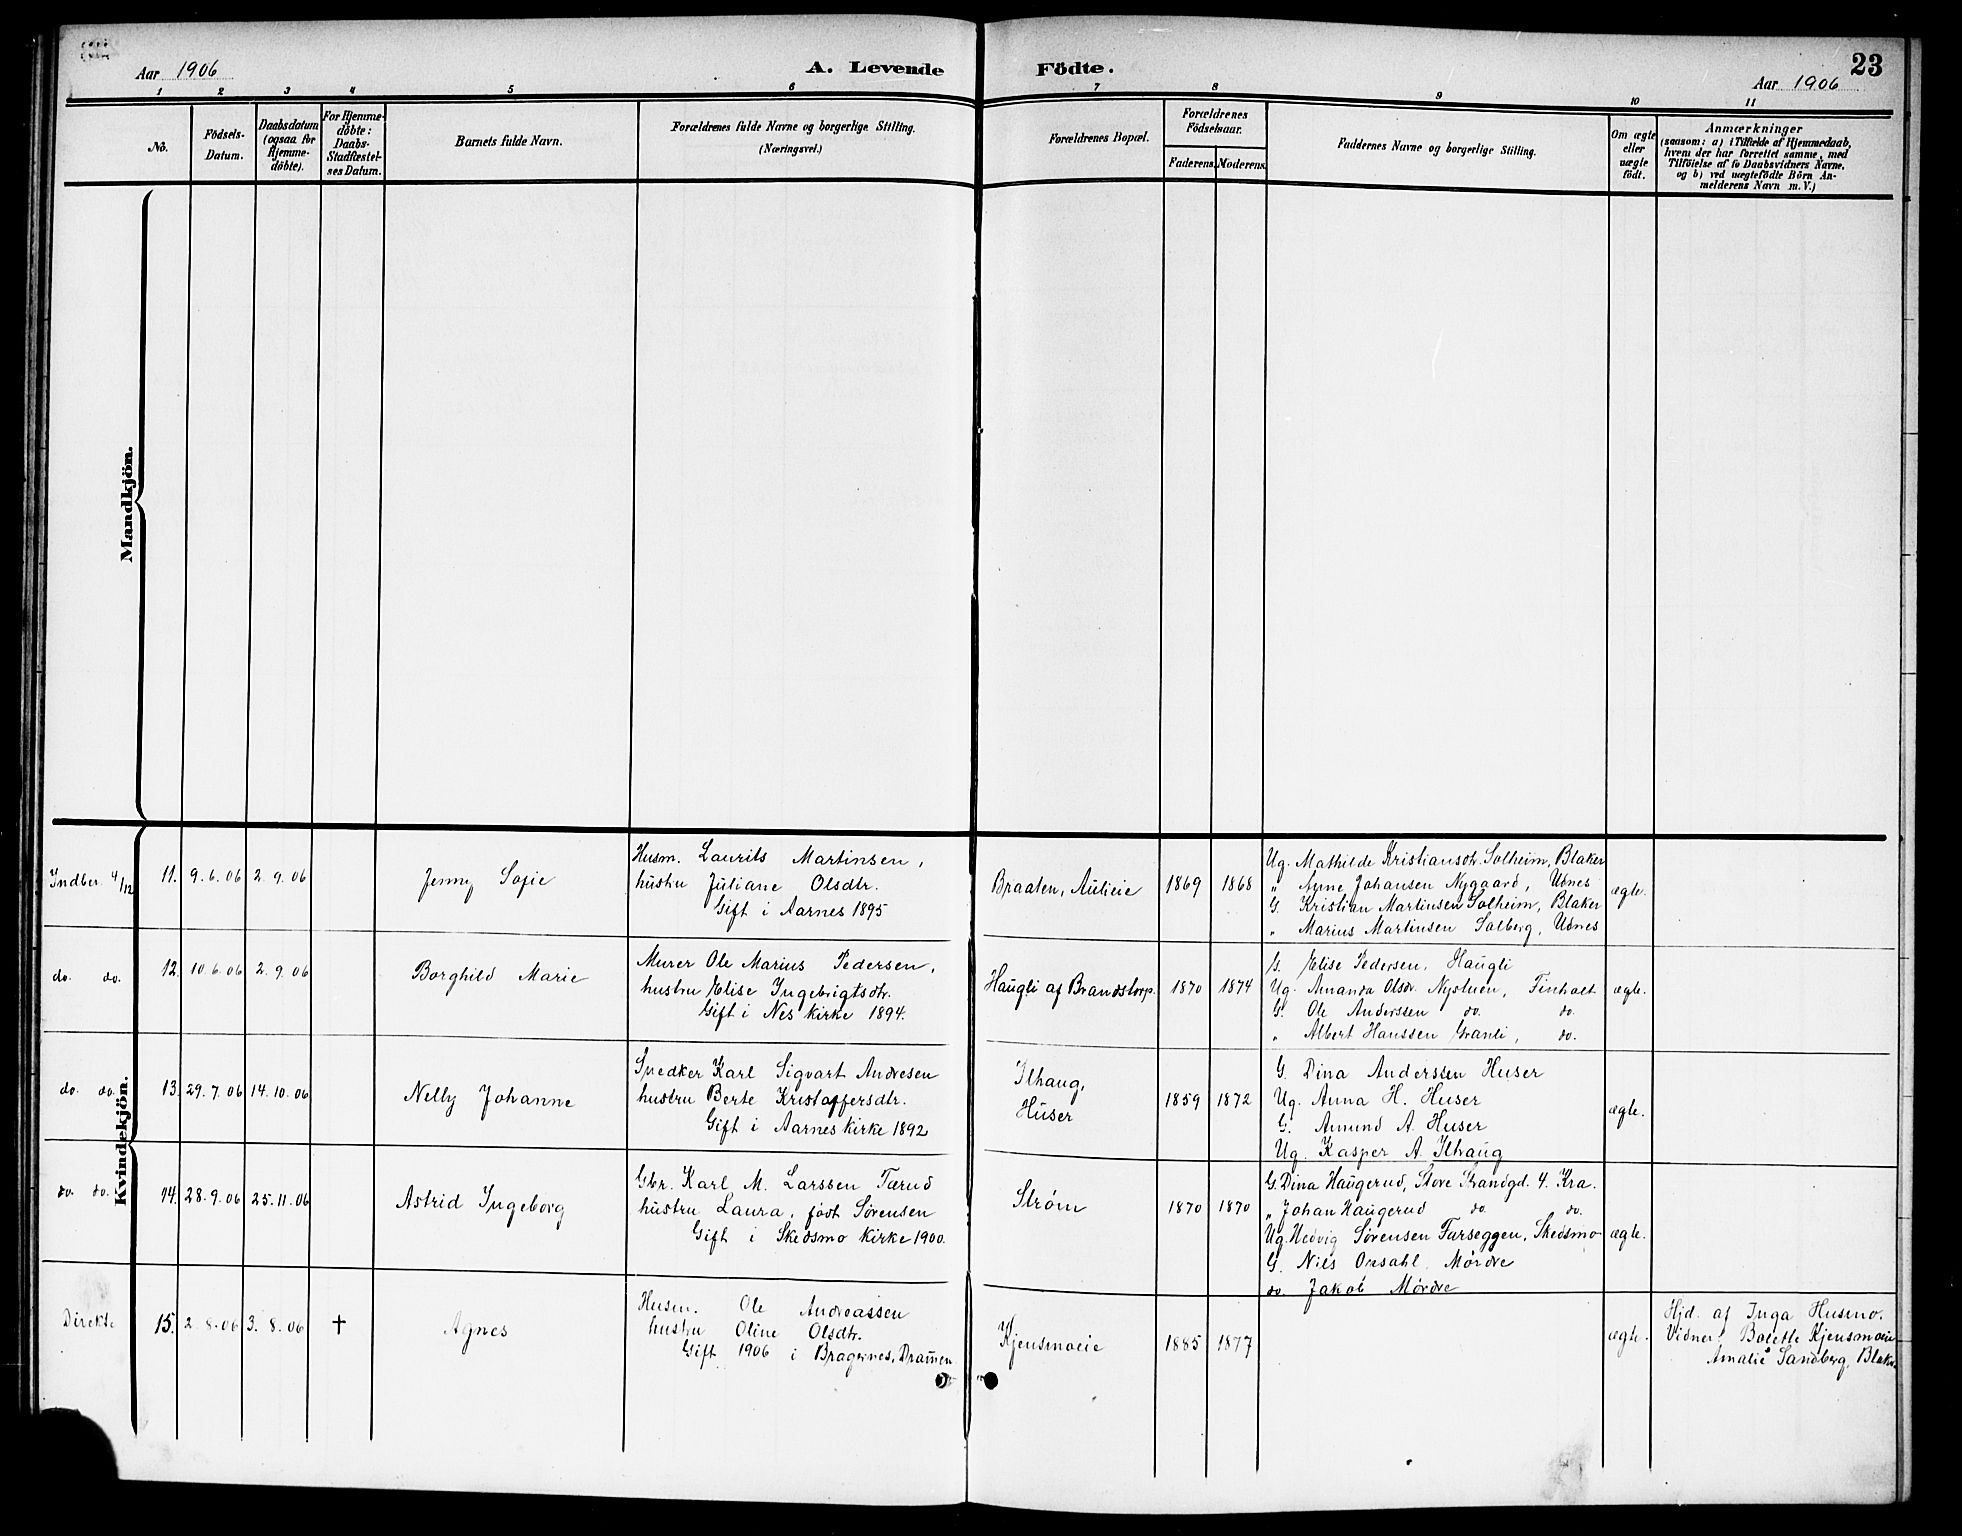 Aar 1906
A. Levende Födte.
23
Aar 1906
1 2 3 4 5 6 7 8 9 10 11
No.
Födsels-
Datum.
Daabsdatum
(ogsaa for
Hjemme-
döbte).
For Hjemme-
döbte:
Daabs-
Stadfæstel-
ses Datum.
Barnets fulde Navn.
Forældrenes fulde Navne og borgerlige Stilling.
(Næringsvei.)
Forældrenes Bopæl.
Forældrenes
Födselsaar.
Faderens. Moderens.
Faddernes Navne og borgerlige Stilling.
Om ægte
eller
uægte
födt.
Anmærkninger
(saasom: a) i Tilfælde af Hjemmedaab,
hvem der har forrettet samme, med
Tilföielse af to Daabsvidners Navne,
og b) ved uægtefödte Börn An-
melderens Navn m. V.)
Mandkjön.
Kvindekjön.
Indber. 4/12
11.
9.6.06
2.9.06
Jenny Sofie
Husm. Laurits Martinsen,
hustru Juliane Olsdtr.
Gift i Aarnes 1895
Braaten, Aulieie
1869
1868
Ug. Mathilde Kristiansdtr. Solheim, Blaker
" Anne Johansen Nygaard, Udnes
G. Kristian Martinsen Solheim, Blaker
" Marius Martinsen Solberg, Udnes
ægte.
do. do.
12.
10.6.06
2.9.06
Borghild Marie
Murer Ole Marius Pedersen,
hustru Elise Ingebrigtsdtr.
Gift i Nes Kirke 1894.
Haugli af Brandstorp.
1870
1874
G. Elise Pedersen, Haugli
Ug. Amanda Olsdr. Nystuen, Finholt
G. Ole Anderssen do. do.
" Albert Hanssen Granli, do.
ægte.
do. do.
13.
29.7.06
14.10.06
Nelly Johanne
Snedker Karl Sigvart Andresen
hustru Berte Kristoffersdtr.
Gift i Aarnes Kirke 1892
Ilhaug,
Huser
1859
1872
G. Dina Anderssen Huser
Ug. Anna H. Huser
G. Amund A. Huser
Ug. Kasper A. Ilhaug
ægte.
do. do.
14.
28.9.06
25.11.06
Astrid Ingeborg
Gbr. Karl M. Larssen Tærud
hustru Laura, født Sørensen
Gift i Skedsmo Kirke 1900.
Strøm
1870
1870
G. Dina Haugerud, Store Strandgd. 4. Kra.
" Johan Haugerud do. do.
Ug. Hedvig Sørensen Farseggen, Skedsmo
G. Nils Mørdre
do. Jakob Mørdre
ægte.
Direkte
15.
2.8.06
3.8.06
†
Agnes
Husm. Ole Andreassen
hustru Oline Olsdtr.
Gift 1906 i Bragernes, Dramen
Kjensmoeie
1885
1877
ægte.
Hjd. af Inga Husmo.
Vidner: Bolette Kjensmoeie
Amalie Sandberg, Blaker